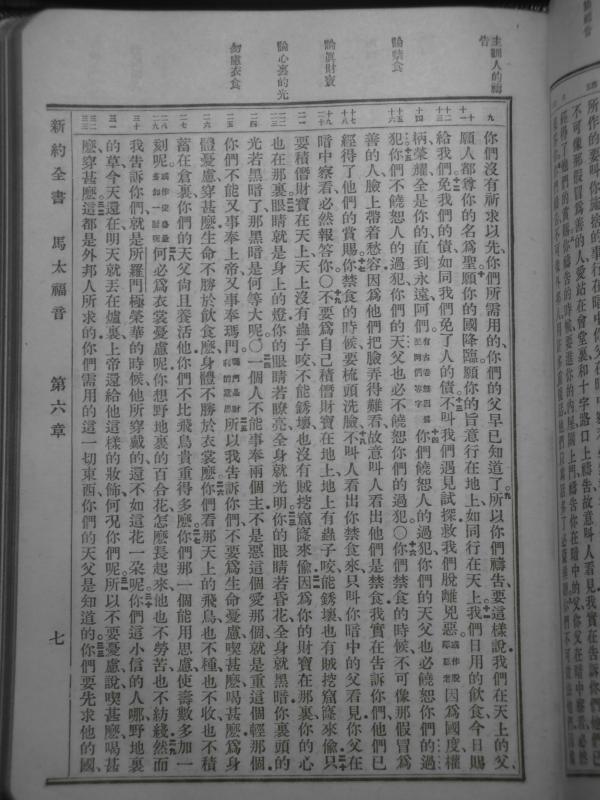 主訓人的禱告
論禁食
論眞財寶
論心裏的光
勿慮衣食
你們沒有祈求以先、你們所需用的、你們的父早已知道了。所以你們禱告要這樣說、我們在天上的父、
願人都尊你的名爲聖。願你的國降臨。願你的旨意行在地上、如同行在天上。我們日用的飲食、今日賜
給我們。免我們的債、如同我們免了人的債。不叫我們遇見試探、救我們脫離兇惡、因爲國度權
柄榮耀、全是你的、直到永遠、阿們。你們饒恕人的過犯、你們的天父也必饒恕你們的過
犯。你們不饒恕人的過犯、你們的天父也必不饒恕你們的過犯。○你們禁食的時候、不可像那假冒爲
善的人、臉上帶着愁容、因爲他們把臉弄得難看、故意叫人看出他們是禁食、我實在告訴你們、他們已
經得了他們的賞賜。你禁食的時候、要梳頭洗臉、不叫人看出你禁食來、只叫你暗中的父看見、你父在
暗中察看、必然報答你。○不要爲自己積儹財寶在地上、地上有蟲子咬、能銹壞、也有賊挖窟窿來偷、只
要積儹財寶在天上、天上沒有蟲子咬、不能銹壞、也沒有賊挖窟窿來偷、因爲你的財寶在那裏、你的心
也在那裏。眼睛就是身上的燈、你的眼睛若瞭亮、全身就光明、你的眼睛若昏花、全身就黑暗、你裏頭的
光若黑暗了、那黑暗是何等大呢。○一個人不能事奉兩個主、不是惡這個愛那個、就是重這個輕那個、
你們不能又事奉上帝、又事奉瑪門。所以我告訴你們、不要爲生命憂慮喫甚麼、喝甚麼、爲身
體憂慮穿甚麼、生命不勝於飲食麼、身體不勝於衣裳麼。你們看那天上的飛鳥、也不種、也不收、也不積
蓄在倉裏、你們的天父尙且養活他、你們不比飛鳥貴重得多麼。你們那一個能用思慮使壽數多加一
刻呢。何必爲衣裳憂慮呢、你想野地裏的百合花、怎麼長起來、他也不勞苦、也不紡綫、然而
我告訴你們、就是所羅門極榮華的時候、他所穿戴的、還不如這花一朵呢。你們這小信的人哪、野地裏
的草、今天還在、明天就丟在爐裏、上帝還給他這樣的妝飾、何况你們呢。所以不要憂慮說、喫甚麼、喝甚
麼、穿甚麼。這都是外邦人所求的、你們需用的這一切東西、你們的天父是知道的。你們要先求他的國、
新約全書 馬太福音 第六章 七